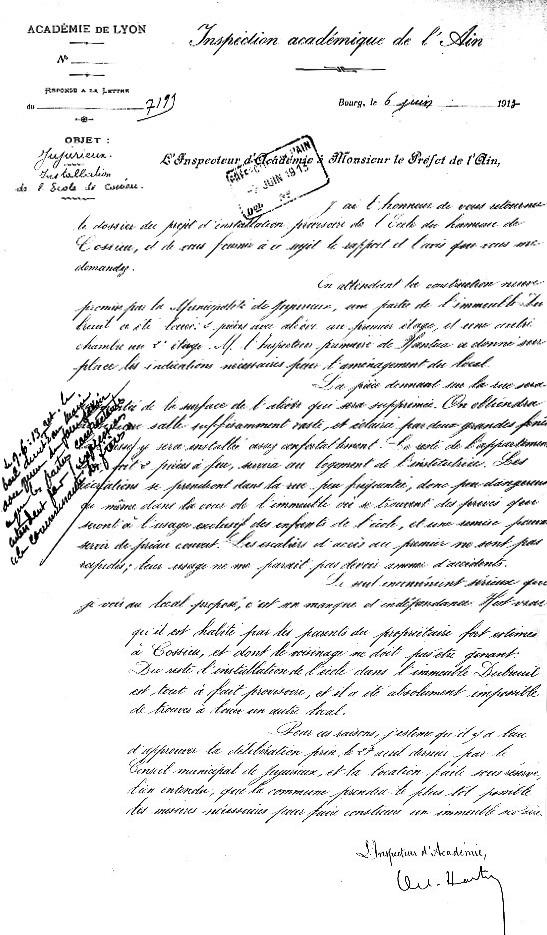 ACADÉMIE DE LYON
N°
RÉPONSE A LA LETTRE
du 7199
OBJET :
Jujurieux.
Installation
de l'Ecole de Cossieu.
Inspection académique de l'Ain
Bourg, le 6 juin 1913
L'Inspecteur d'Académie à Monsieur le Préfet de l'Ain,
JUIN 1913
J'ai l'honneur de vous retourner
le dossier du projet d'installation provisoire de l'Ecole du hameau de
Cossieu, et de vous fournir à ce sujet le rapport et l'avis que vous me
demandez.
En attendant la construction neuve
promise par la Municipalité de Jujurieux, une partie de l'immeuble Du
breuil a été louée. 2 pièces avec alcôve au premier étage, et une autre
chambre au 2e étage. M. l'Inspecteur primaire de Nantua a donné sur
place les indications nécessaires pour l'aménagement du local.
La pièce donnant sur la rue sera
de la surface de l'alcôve qui sera supprimée. On obtiendra
salle suffisamment vaste, et éclairée par deux grandes
y sera installée assez confortablement. Le reste de l'appartement
soit 2 pièces à feu, servira au logement de l'institutrice. Les
récréations se prendront dans la rue peu fréquentée, donc peu dangereuse
ou même dans la cour de l'immeuble où se trouvent des privés qui
seront à l'usage exclusif des enfants de l'école, et une remise pouvant
servir de préau couvert. Les escaliers d'accès au premier ne sont pas
rapides; leur usage ne me paraît pas devoir amener d'accidents.
Le seul inconvénient sérieux que
je vois au local proposé, c'est un manque d'indépendance. Il est vrai
qu'il est habité par des parents du propriétaire fort estimés
à Cossieu, et dont le voisinage ne doit pas être gênant.
Du reste l'installation de l'école dans l'immeuble Dubreuil
est tout à fait provisoire, et il a été absolument impossible
de trouver à louer un autre local.
Pour ces raisons, j'estime qu'il y a lieu
d'approuver la délibération prise le 27 avril dernier par le
Conseil municipal de Jujurieux, et la location faite sous réserve,
bien entendu, que la commune prendra le plus tôt possible
des mesures nécessaires pour faire construire un immeuble scolaire.
L'Inspecteur d'Académie,